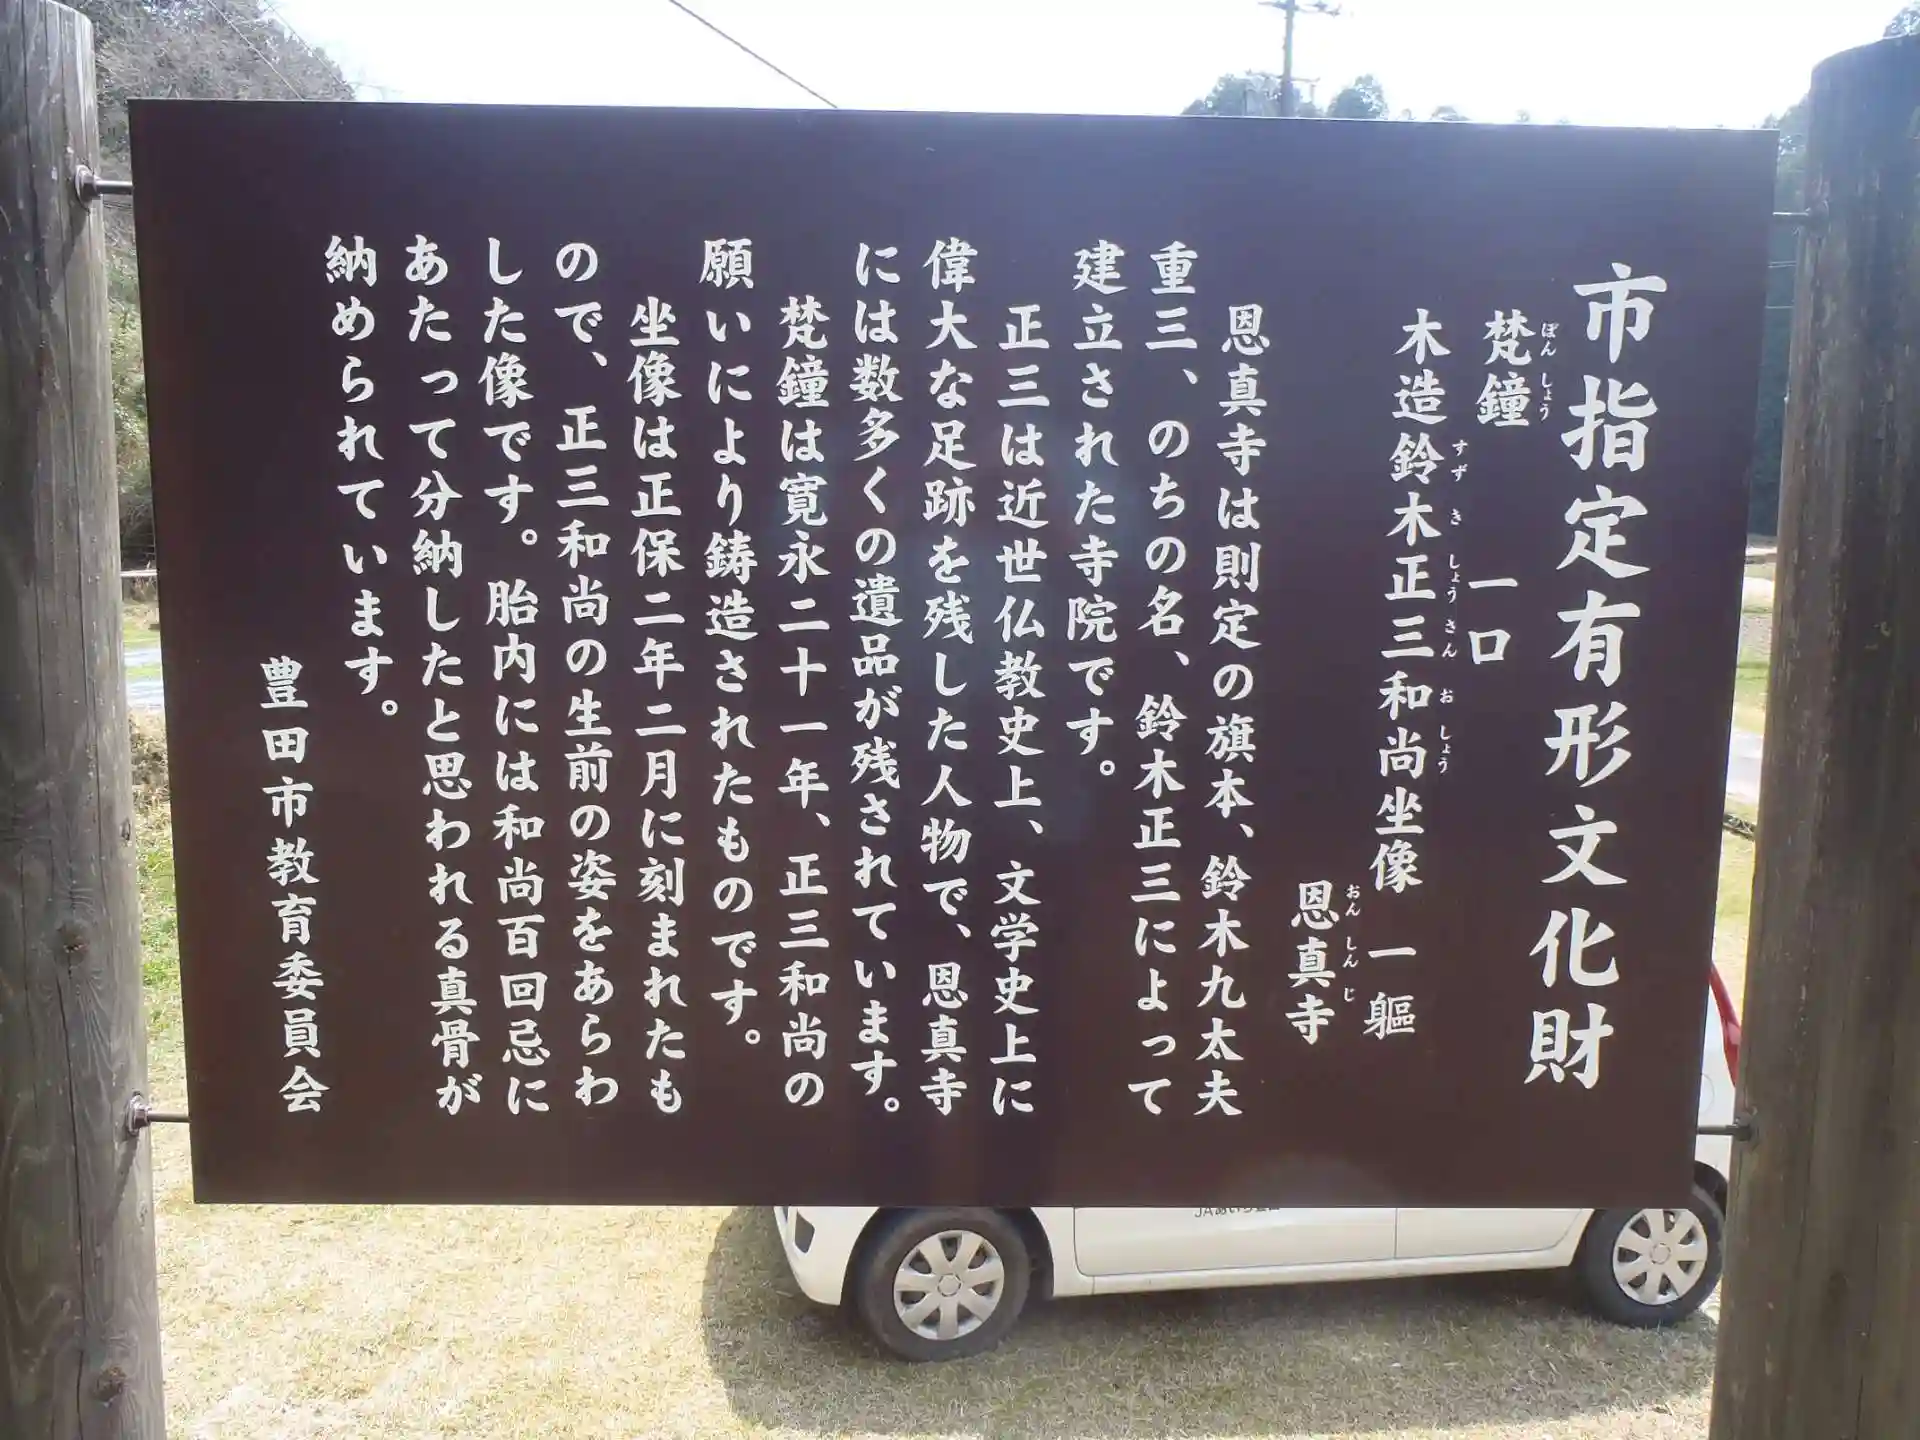 市指定有形文化財
梵鐘 一口
ぼんしょう
木造鈴木正三和尚坐像 一軀
すずきしょうさんおしょう
恩真寺
おんしんじ
恩真寺は則定の旗本、鈴木九太夫
重三、のちの名、鈴木正三によって
建立された寺院です。
正三は近世仏教史上、文学史上に
偉大な足跡を残した人物で、恩真寺
には数多くの遺品が残されています。
梵鐘は寛永二十一年、正三和尚の
願いにより鋳造されたものです。
坐像は正保二年二月に刻まれたも
ので、正三和尚の生前の姿をあらわ
した像です。胎内には和尚百回忌に
あたって分納したと思われる真骨が
納められています。
豊田市教育委員会